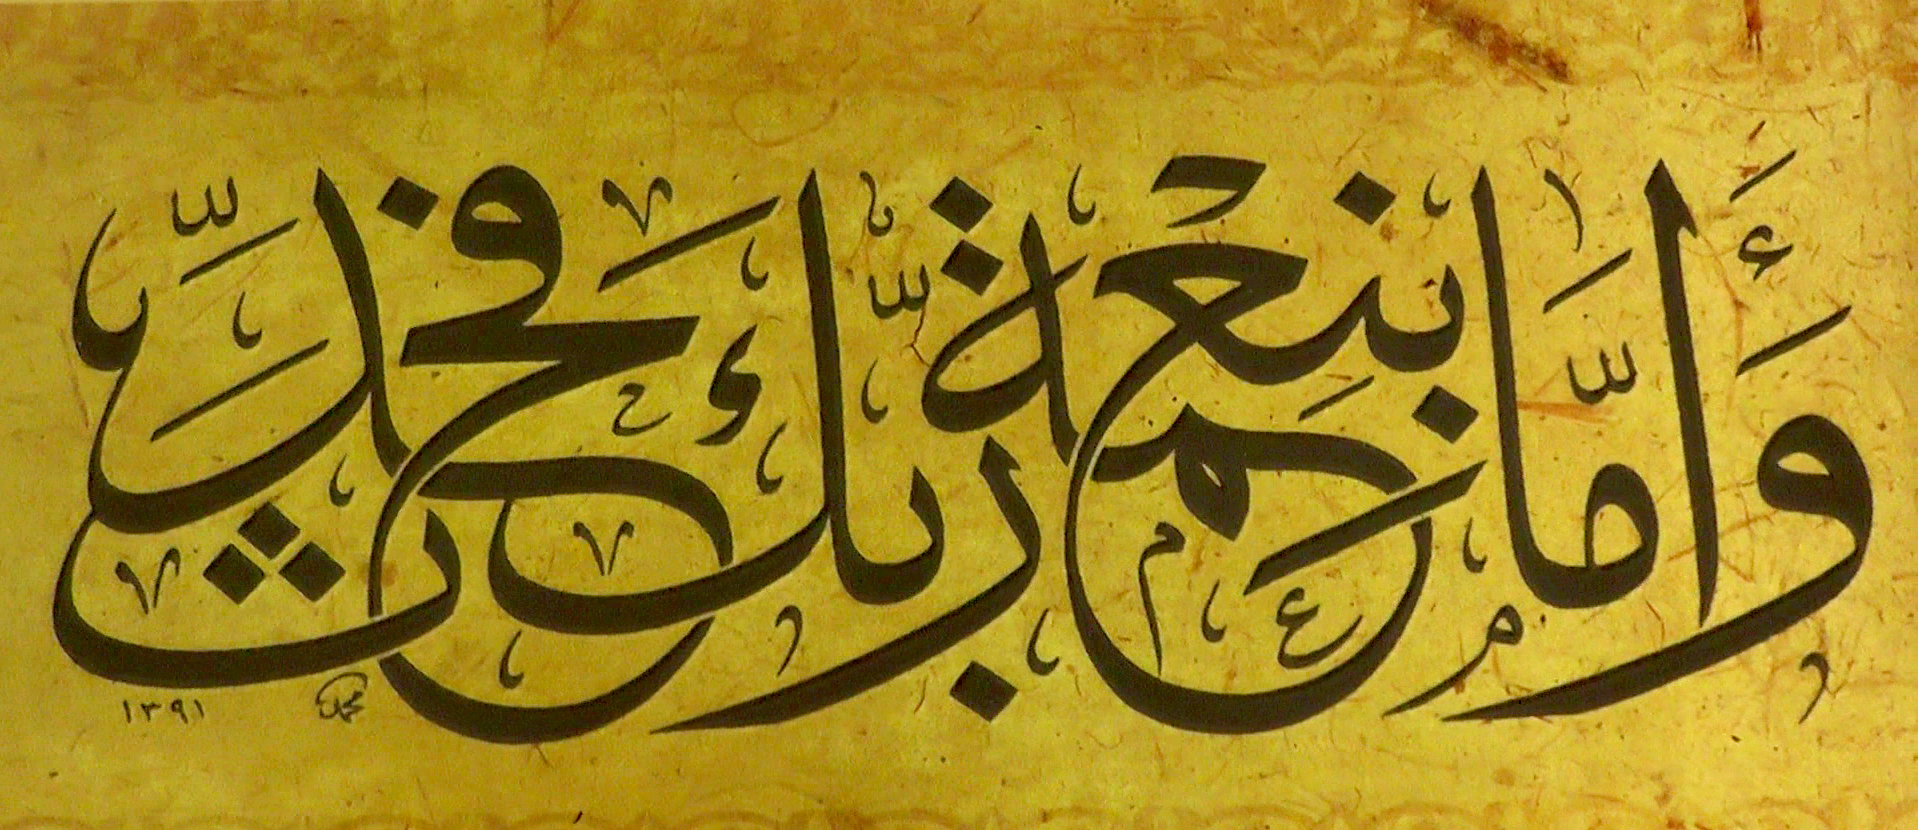 وَأَمَّا بِنِعْمَةِ رَبِّكَ فَحَدِّثْ
محمد
١٣٩١